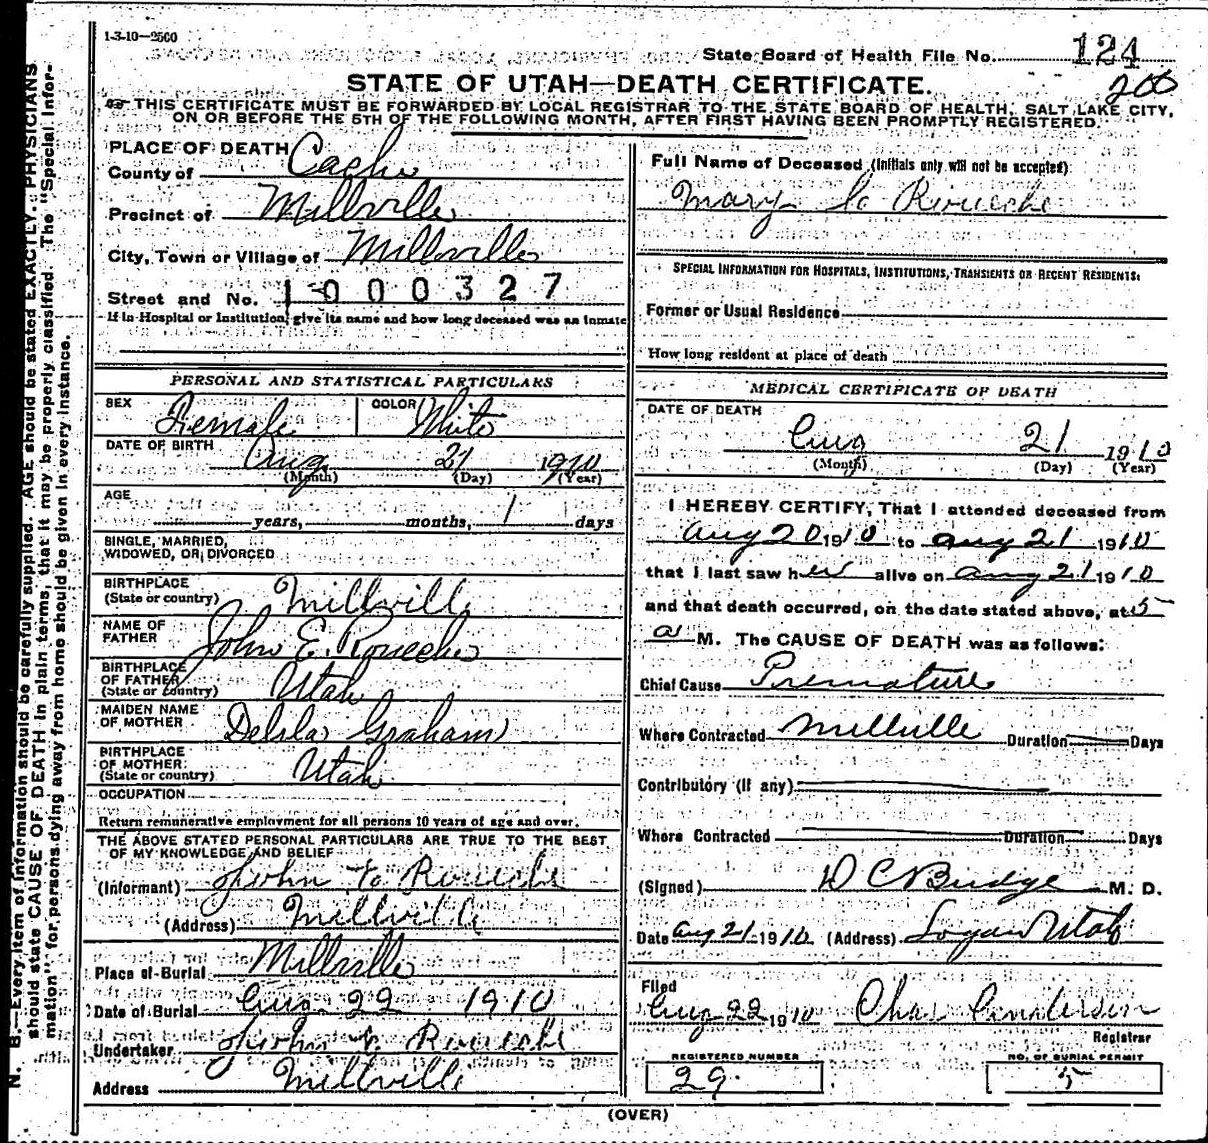 1-3-10—2500
State Board of Health File No. 124
200
STATE OF UTAH—DEATH CERTIFICATE.
THIS CERTIFICATE MUST BE FORWARDED BY LOCAL REGISTRAR TO THE STATE BOARD OF HEALTH, SALT LAKE CITY,
ON OR BEFORE THE 5TH OF THE FOLLOWING MONTH, AFTER FIRST HAVING BEEN PROMPTLY REGISTERED.
PLACE OF DEATH
County of Cache
Precinct of Millville
City, Town or Village of Millville
Street and No. 1000327
If in Hospital or Institution, give its name and how long deceased was an Inmate
PERSONAL AND STATISTICAL PARTICULARS
SEX Female COLOR White
DATE OF BIRTH Aug 21 1910
(Month) (Day) (Year)
AGE
years, months, 1 days
SINGLE, MARRIED,
WIDOWED, OR DIVORCED
BIRTHPLACE
(State or country) Millville
NAME OF
FATHER John E. Roueche
BIRTHPLACE
OF FATHER
(State or country) Utah
MAIDEN NAME
OF MOTHER Delila Graham
BIRTHPLACE
OF MOTHER
(State or country) Utah
OCCUPATION
Return remunerative employment for all persons 10 years of age and over.
THE ABOVE STATED PERSONAL PARTICULARS ARE TRUE TO THE BEST
OF MY KNOWLEDGE AND BELIEF
(Informant) John E Roueche
(Address) Millville
Place of Burial Millville
Date of Burial Aug. 22 1910
Undertaker John E. Roueche
Address Millville
Full Name of Deceased (Initials only will not be accepted)
Mary Roueche
SPECIAL INFORMATION FOR HOSPITALS, INSTITUTIONS, TRANSIENTS OR RECENT RESIDENTS:
Former or Usual Residence
How long resident at place of death
MEDICAL CERTIFICATE OF DEATH
DATE OF DEATH
Aug 21 1910
(Month) (Day) (Year)
I HEREBY CERTIFY, That I attended deceased from
Aug 20 1910 to Aug 21 1910
that I last saw her alive on Aug 21 1910
and that death occurred, on the date stated above, at 5
a M. The CAUSE OF DEATH was as follows:
Chief Cause Premature
Where Contracted Millville Duration Days
Contributory (if any)
Where Contracted Duration Days
(Signed) D C Budge M. D.
Date Aug 21 1910 (Address) Logan Utah
Filed
Aug 22 1910 Chas Anderson
Registrar
REGISTERED NUMBER
29.
NO. OF BURIAL PERMIT
5
(OVER)
N. B.—Every item of information should be carefully supplied. AGE should be stated EXACTLY. PHYSICIANS
should state CAUSE OF DEATH in plain terms, that it may be properly classified. The "Special Infor-
mation" for persons dying away from home should be given in every instance.